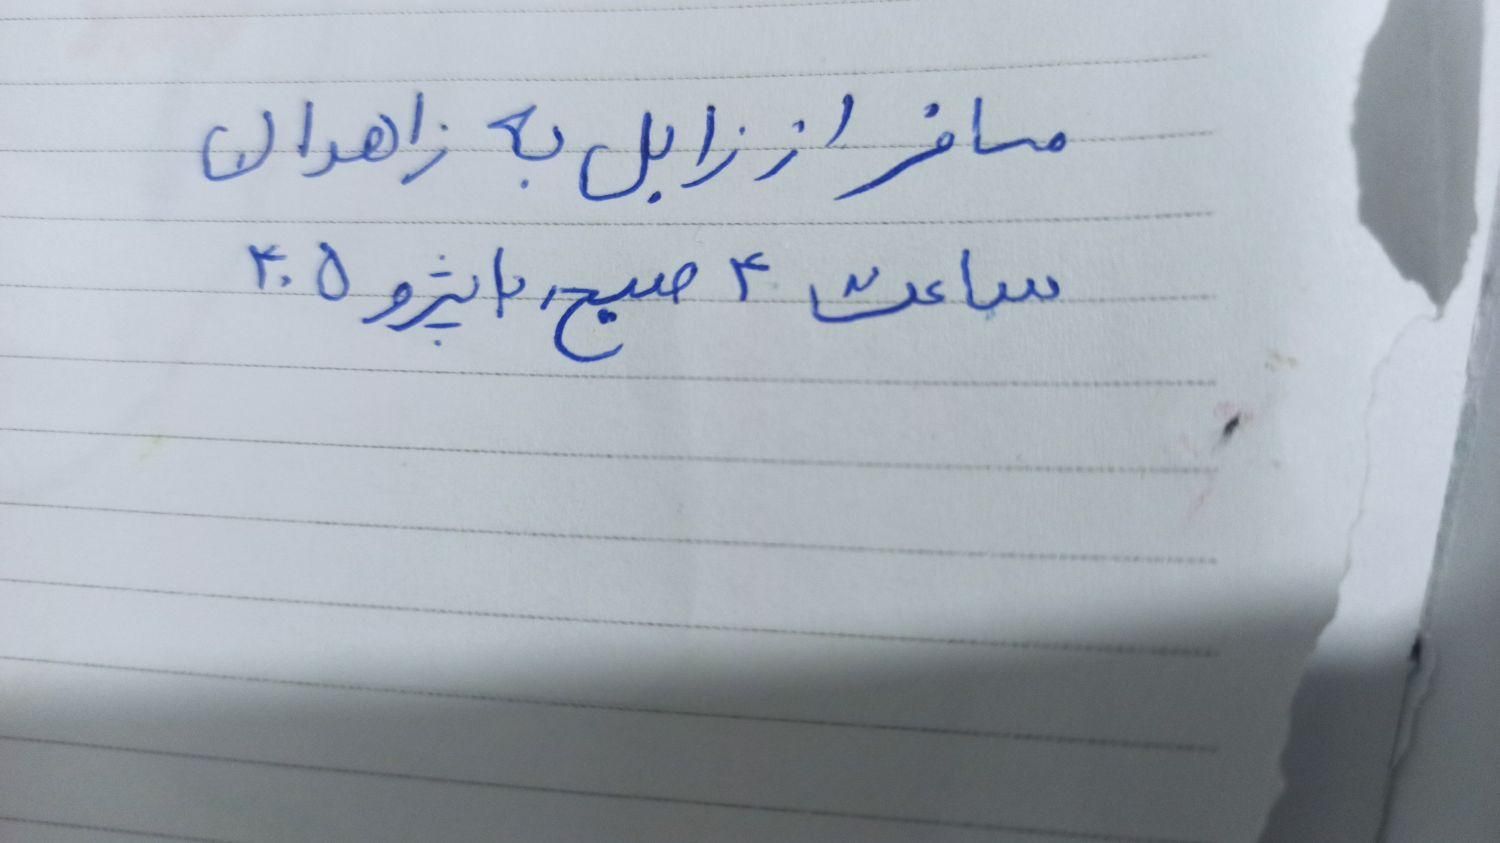 مسافر از زابل به زاهدان
ساعت ۴ صبح، با پژو ۴۰۵